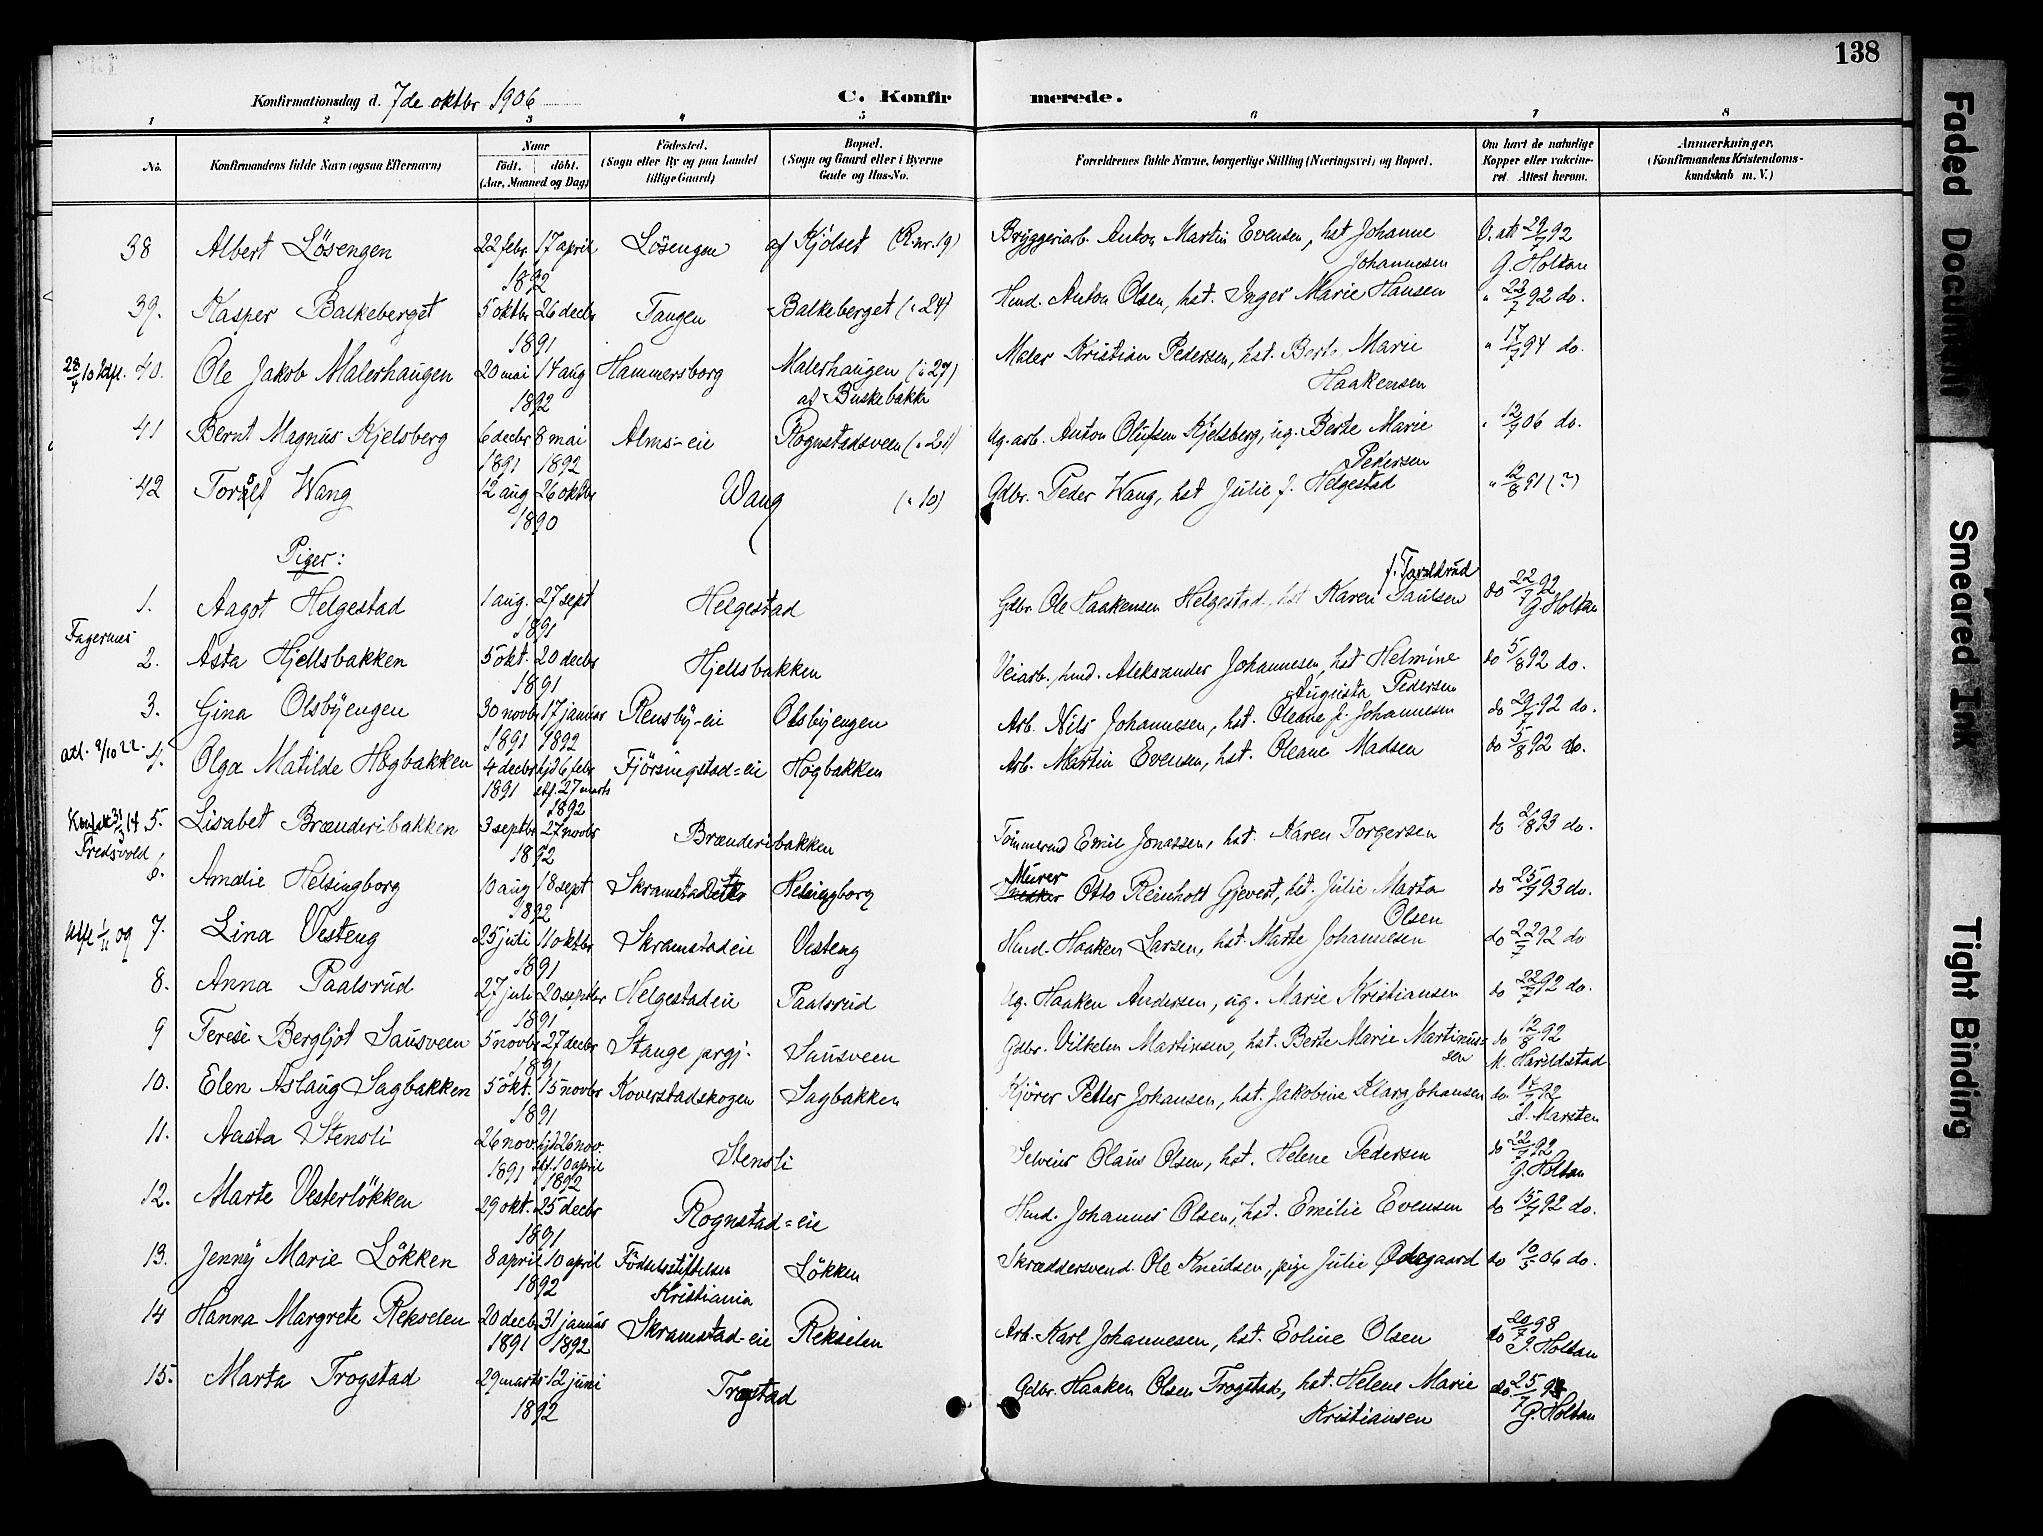 138
Konfirmationsdag d. 7de oktbr 1906
C. Konfirmerede.
1 2 3 4 5 6 7 8
No. Konfirmandens fulde Navn (ogsaa Efternavn) Naar født. døbt. (Aar, Maaned og Dag) Fødested. (Sogn eller By og paa Landet tillige Gaard) Bopæl. (Sogn og Gaard eller i Byerne Gade og Hus-No. Forældrenes fulde Navne, borgerlige Stilling (Næringsvei) og Bopæl. Om havt de naturlige Kopper eller vaccineret. Attest herom. Anmærkninger. (Konfirmandens Kristendomskundskab m. V.)
38 Albert Lösengen 22 febr. 17 april 1892 Lösengen af Kjölset (R.nr. 19) Bryggeriarb. Anton Martin Evensen, hst Johanne Johannesen V. att 29/7 92 G. Holtan
39. Kasper Balkeberget 5 oktbr 26 decbr 1891 Tangen Balkeberget (" 24) Hmd. Anton Olsen, hst. Inger Marie Hansen " 22/7 92 do.
40. Ole Jakob Malerhaugen 20 mai 14 aug 1892 Hammersborg Malerhaugen (" 27) af Buskebakk Maler Kristian Pedersen, hst. Berte Marie Haakensen " 17/7 94 do.
41 Bernt Magnus Kjelsberg 6 decbr 1891 8 mai 1892 Alms-eie Rognstadsveen (" 21) Ug. arb. Anton Olufsen Kjelsberg, ug. Berte Marie Pedersen " 12/7 06 do.
42 Toralf Wang 12 aug 26 oktbr 1890 Wang (" 10) Gdbr. Peder Wang, hst Julie f. Helgestad " 12/8 91 (?)
Piger:
1. Aagot Helgestad 1 aug. 27 sept 1891 Helgestad Gdbr. Ole Haakensen Helgestad, hst Karen Paulsen f. Taraldrud do 22/7 92 G. Holtan
Fagernes
2. Asta Hjellsbakken 5 okt. 20 decbr 1891 Hjellsbakken Veiarb., hmd. Aleksander Johannesen, hst Helmine Augusta Pedersen do 5/8 92 do.
3. Gina Olsbyengen 30 novbr 1891 17 januar 1892 Rensby-eie Olsbyengen Arb. Nils Johannesen, hst. Oleane f. Johannesen do 29/7 92 do.
att. 9/10 22. 4. Olga Matilde Högbakken 4 decbr 1891 hjd 6 febr stf. 27 marts 1892 Fjörsingstad-eie Högbakken Arb. Martin Evensen, hst. Oleane Madsen do 5/8 92 do.
5. Lisabet Brænderibakken 3 septbr 27 novbr 1892 Brænderibakken Tömmermd Emil Jonassen, hst. Karen Torgersen do 2/8 93 do.
Fredsvold
6. Amalie Helsingborg 10 aug 18 sept 1892 Helsingborg Murer Otto Reinholt Gjevert, hst. Julie Marta Olsen do 25/7 93 do.
Attst 1/11 09 7. Lina Vesteng 25 juli 11 oktbr 1891 Skramstadeie Vesteng Hmd. Haaken Larsen, hst. Marte Johannesen do 22/7 92 do
8. Anna Paalsrud 27 juli 20 septbr 1891 Helgestadeie Paalsrud Ug. Haaken Andersen, ug. Marie Kristiansen do 22/7 92 do.
9 Terese Bergljot Sausveen 5 novbr 27 decbr 1891 Stange prgj. Sausveen Gdbr. Vilhelm Martinsen, hst. Berte Marie Martinussen do 12/8 92 M. Haraldstad
10. Elen Aslaug Sagbakken 5 okt. 15 novbr 1891 Koverstadskogen Sagbakken Kjörer Petter Johansen, hst. Jakobine Klara Johansen do. 14/7 92 A. Marsten
11. Aasta Stensli 26 nov. 1891 hjd 26 nov. stf. 10 april 1892 Stensli Selveier Olaus Olsen, hst. Helene Pedersen do 22/7 92 G. Holtan
12. Marte Vesterlökken 29 okt. 25 decbr 1891 Rognstad-eie Hmd. Johannes Olsen, hst. Emilie Evensen do 15/7 92 do.
13. Jenny Marie Lökken 8 april 10 april 1892 Födselsstiftelsen Kristiania Lökken Skræddersvend Ole Knudsen, pige Julie Ødegaard do 10/5 06 do.
14 Hanna Margrete Rekselen 20 decbr 1891 31 januar 1892 Skramstad-eie Rekselen Arb. Karl Johannesen, hst. Eoline Olsen do 20/7 98 G. Holtan
15. Marta Trogstad 29 marts 12 juni 1892 Trogstad Gdbr. Haaken Olsen Trogstad, hst. Helene Marie Kristiansen do. 25/7 93 G. Holtan
Faded Document
Smeared Ink
Tight Binding